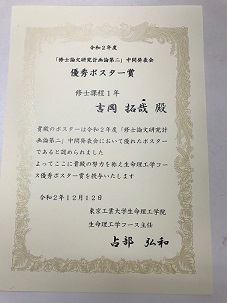 令和２年度
「修士論文研究計画論第二」中間発表会
優秀ポスター賞
修士課程１年
吉岡 拓哉 殿
貴殿のポスターは令和２年度「修士論文研究計
画論第二」中間発表会において優れたポスター
であると認められました
よってここに貴殿の努力を称え生命理工学コー
ス優秀ポスター賞を授与いたします
令和２年１２月１２日
東京工業大学生命理工学院
生命理工学コース主任
占部 弘和